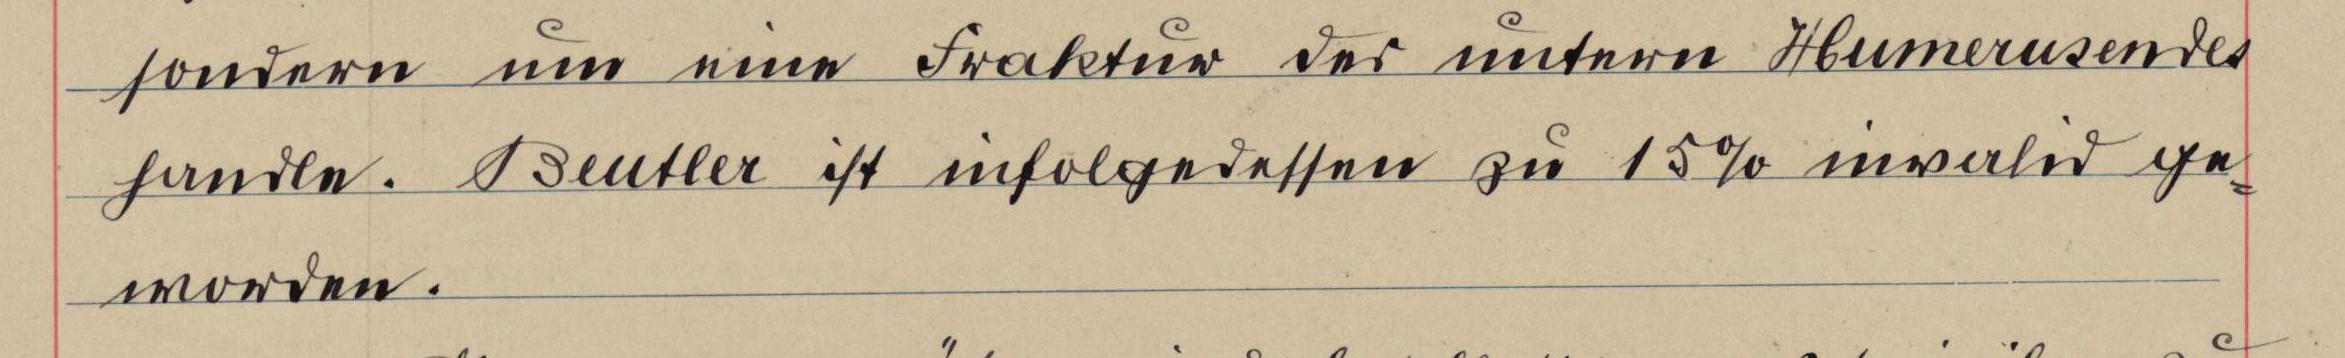 sondern um eine Fraktur des untern Humerusendes
handle. Beutler ist infolgedessen zu 15% invalid ge-
worden.